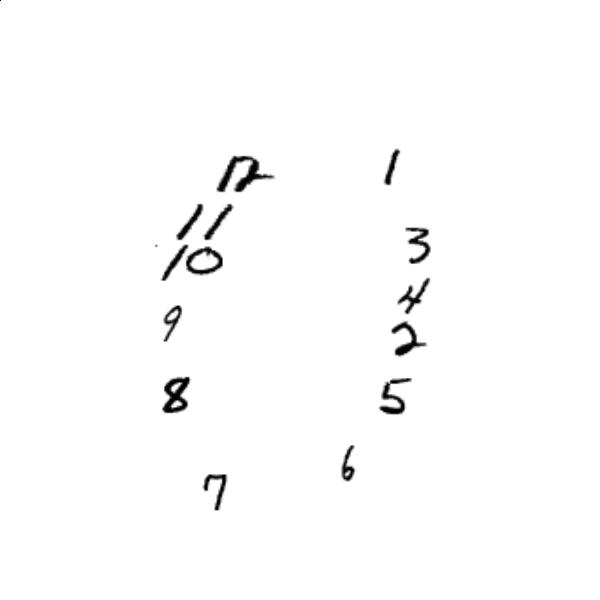 12 1
11
10 3
9 4
2
8 5
6
7